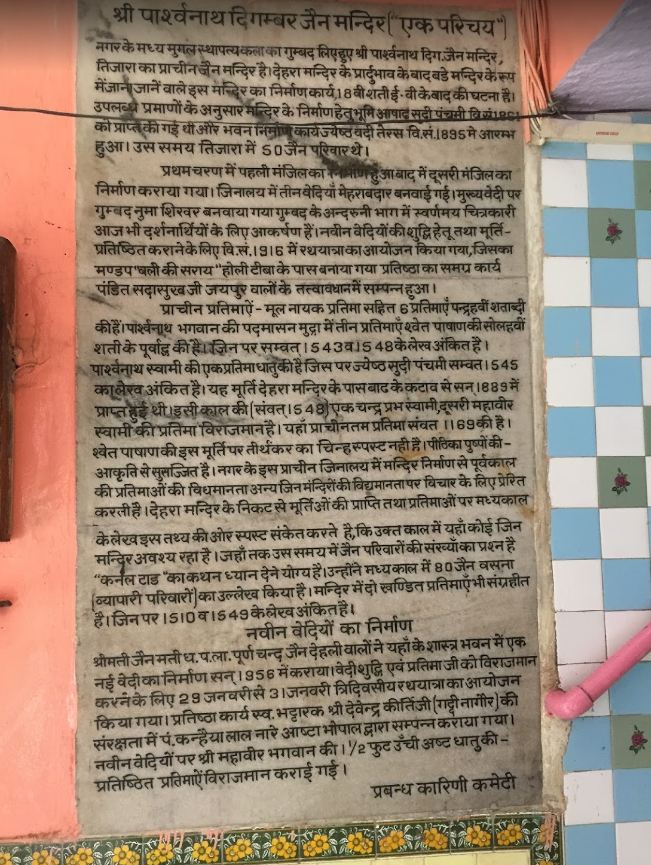 श्री पार्श्वनाथ दिगम्बर जैन मन्दिर ("एक परिचय")
नगर के मध्य मुगल स्थापत्यकला का गुम्बद लिए हुए श्री पार्श्वनाथ दिग. जैन मन्दिर,
तिजारा का प्राचीन जैन मन्दिर है। देहरा मन्दिर के प्रार्दुभाव के बाद बडे मन्दिर के रूप
में जाना जानें वाले इस मन्दिर का निर्माण कार्य, 18 वी शती ई॰ वी के बाद की घटना है।
उपलब्ध प्रमाणों के अनुसार मन्दिर के निर्माण हेतू भूमि आषाढ़ सुदी पंचमी वि.सं.
को प्राप्त की गई थी और भवन निर्माण कार्य ज्येष्ठ वदी तेरस वि.सं. 1895 मे आरम्भ
हुआ। उस समय तिजारा में 50 जैन परिवार थे।
प्रथम चरण में पहली मंजिल का निर्माण हुआ बाद में दूसरी मंजिल का
निर्माण कराया गया। जिनालय में तीन वेदियाँ मेहराबदार बनवाई गई। मुख्य वेदी पर
गुम्बद नुमा शिखर बनवाया गया गुम्बद के अन्दरुनी भाग में स्वर्णमय चित्रकारी
आज भी दर्शनार्थियों के लिए आकर्षण हैं। नवीन वेदियों की शुद्वि हेतू तथा मूर्ति-
प्रतिष्ठित कराने के लिए वि.सं. 1916 में रथयात्रा का आयोजन किया गया, जिसका
मण्डप "बली की सराय" होली टीबा के पास बनाया गया प्रतिष्ठा का समग्र कार्य
पंडित सदासुख जी जयपुर वालों के तत्त्वावधान में सम्पन्न हुआ।
प्राचीन प्रतिमाऐं - मूल नायक प्रतिमा सहित 6 प्रतिमाएँ पन्द्रहवीं शताब्दी
की हैं। पार्श्वनाथ भगवान की पदमासन मुद्रा में तीन प्रतिमाएँ श्वेत पाषाण की सौलहवीं
शती के पूर्वाद्व की है। जिन पर सम्वत। 543 व। 548 के लेख अंकित है।
पार्श्वनाथ स्वामी की एक प्रतिमा धातु की है जिस पर ज्येष्ठ सुदी पंचमी सम्वत। 545
का लेख अंकित है। यह मूर्ति देहरा मन्दिर के पास बाद के कटाव से सन्। 889 में
प्राप्त हुई थी। इसी काल की (संवत्। 548) एक चन्द्र प्रभ स्वामी, दूसरी महावीर
स्वामी की प्रतिमा विराजमान है। यहाँ प्राचीनतम प्रतिमा संवत ।।69 की है।
श्वेत पाषाण की इस मूर्ति पर तीर्थकर का चिन्ह स्पस्ट नही है। पीठिका पुष्पों की-
आकृति से सुसज्जित है। नगर के इस प्राचीन जिनालय में मन्दिर निर्माण से पूर्वकाल
की प्रतिमाओं की विधमानता अन्य जिन मंदिरों की विद्यमानता पर विचार के लिए प्रेरित
करती है। देहरा मन्दिर के निकट से मूर्तिओं की प्राप्ति तथा प्रतिमाओं पर मध्यकाल
के लेख इस तथ्य की ओर स्पस्ट संकेत करते है, कि उक्त काल में यहाँ कोई जिन
मन्दिर अवश्य रहा है। जहाँ तक उस समय में जैन परिवारों की संख्याँ का प्रश्न है
"कर्नल टाड" का कथन ध्यान देने योग्य है। उन्होंने मध्यकाल में 80 जैन वसना
(व्यापारी परिवारों) का उल्लेख किया है। मन्दिर में दो खण्डित प्रतिमाएँ भी संग्रहीत
है। जिन पर। 510 व। 549 के लेख अंकित है।
नवीन वेदियों का निर्माण
श्रीमती जैनमती ध.प.ला. पूर्ण चन्द जैन देहली वालों ने यहाँ के शास्त्र भवन में एक
नई वेदी का निर्माण सन्। 956 में कराया। वेदी शुद्धि एवं प्रतिमा जी को विराजमान
करने के लिए 29 जनवरी से 31 जनवरी त्रिदिवसीय रथयात्रा का आयोजन
किया गया। प्रतिष्ठा कार्य स्व. भट्टारक श्री देवेन्द्र कीर्तिजी (गद्दी नागौर) की
संरक्षता में पं. कन्हैया लाल नारे आष्टा भोपाल द्वारा सम्पन्न कराया गया।
नवीन वेदियों पर श्री महावीर भगवान की। 1/2 फुट उँची अष्ट धातु की-
प्रतिष्ठित प्रतिमाऐं विराजमान कराई गई।
प्रबन्ध कारिणी कमेटी